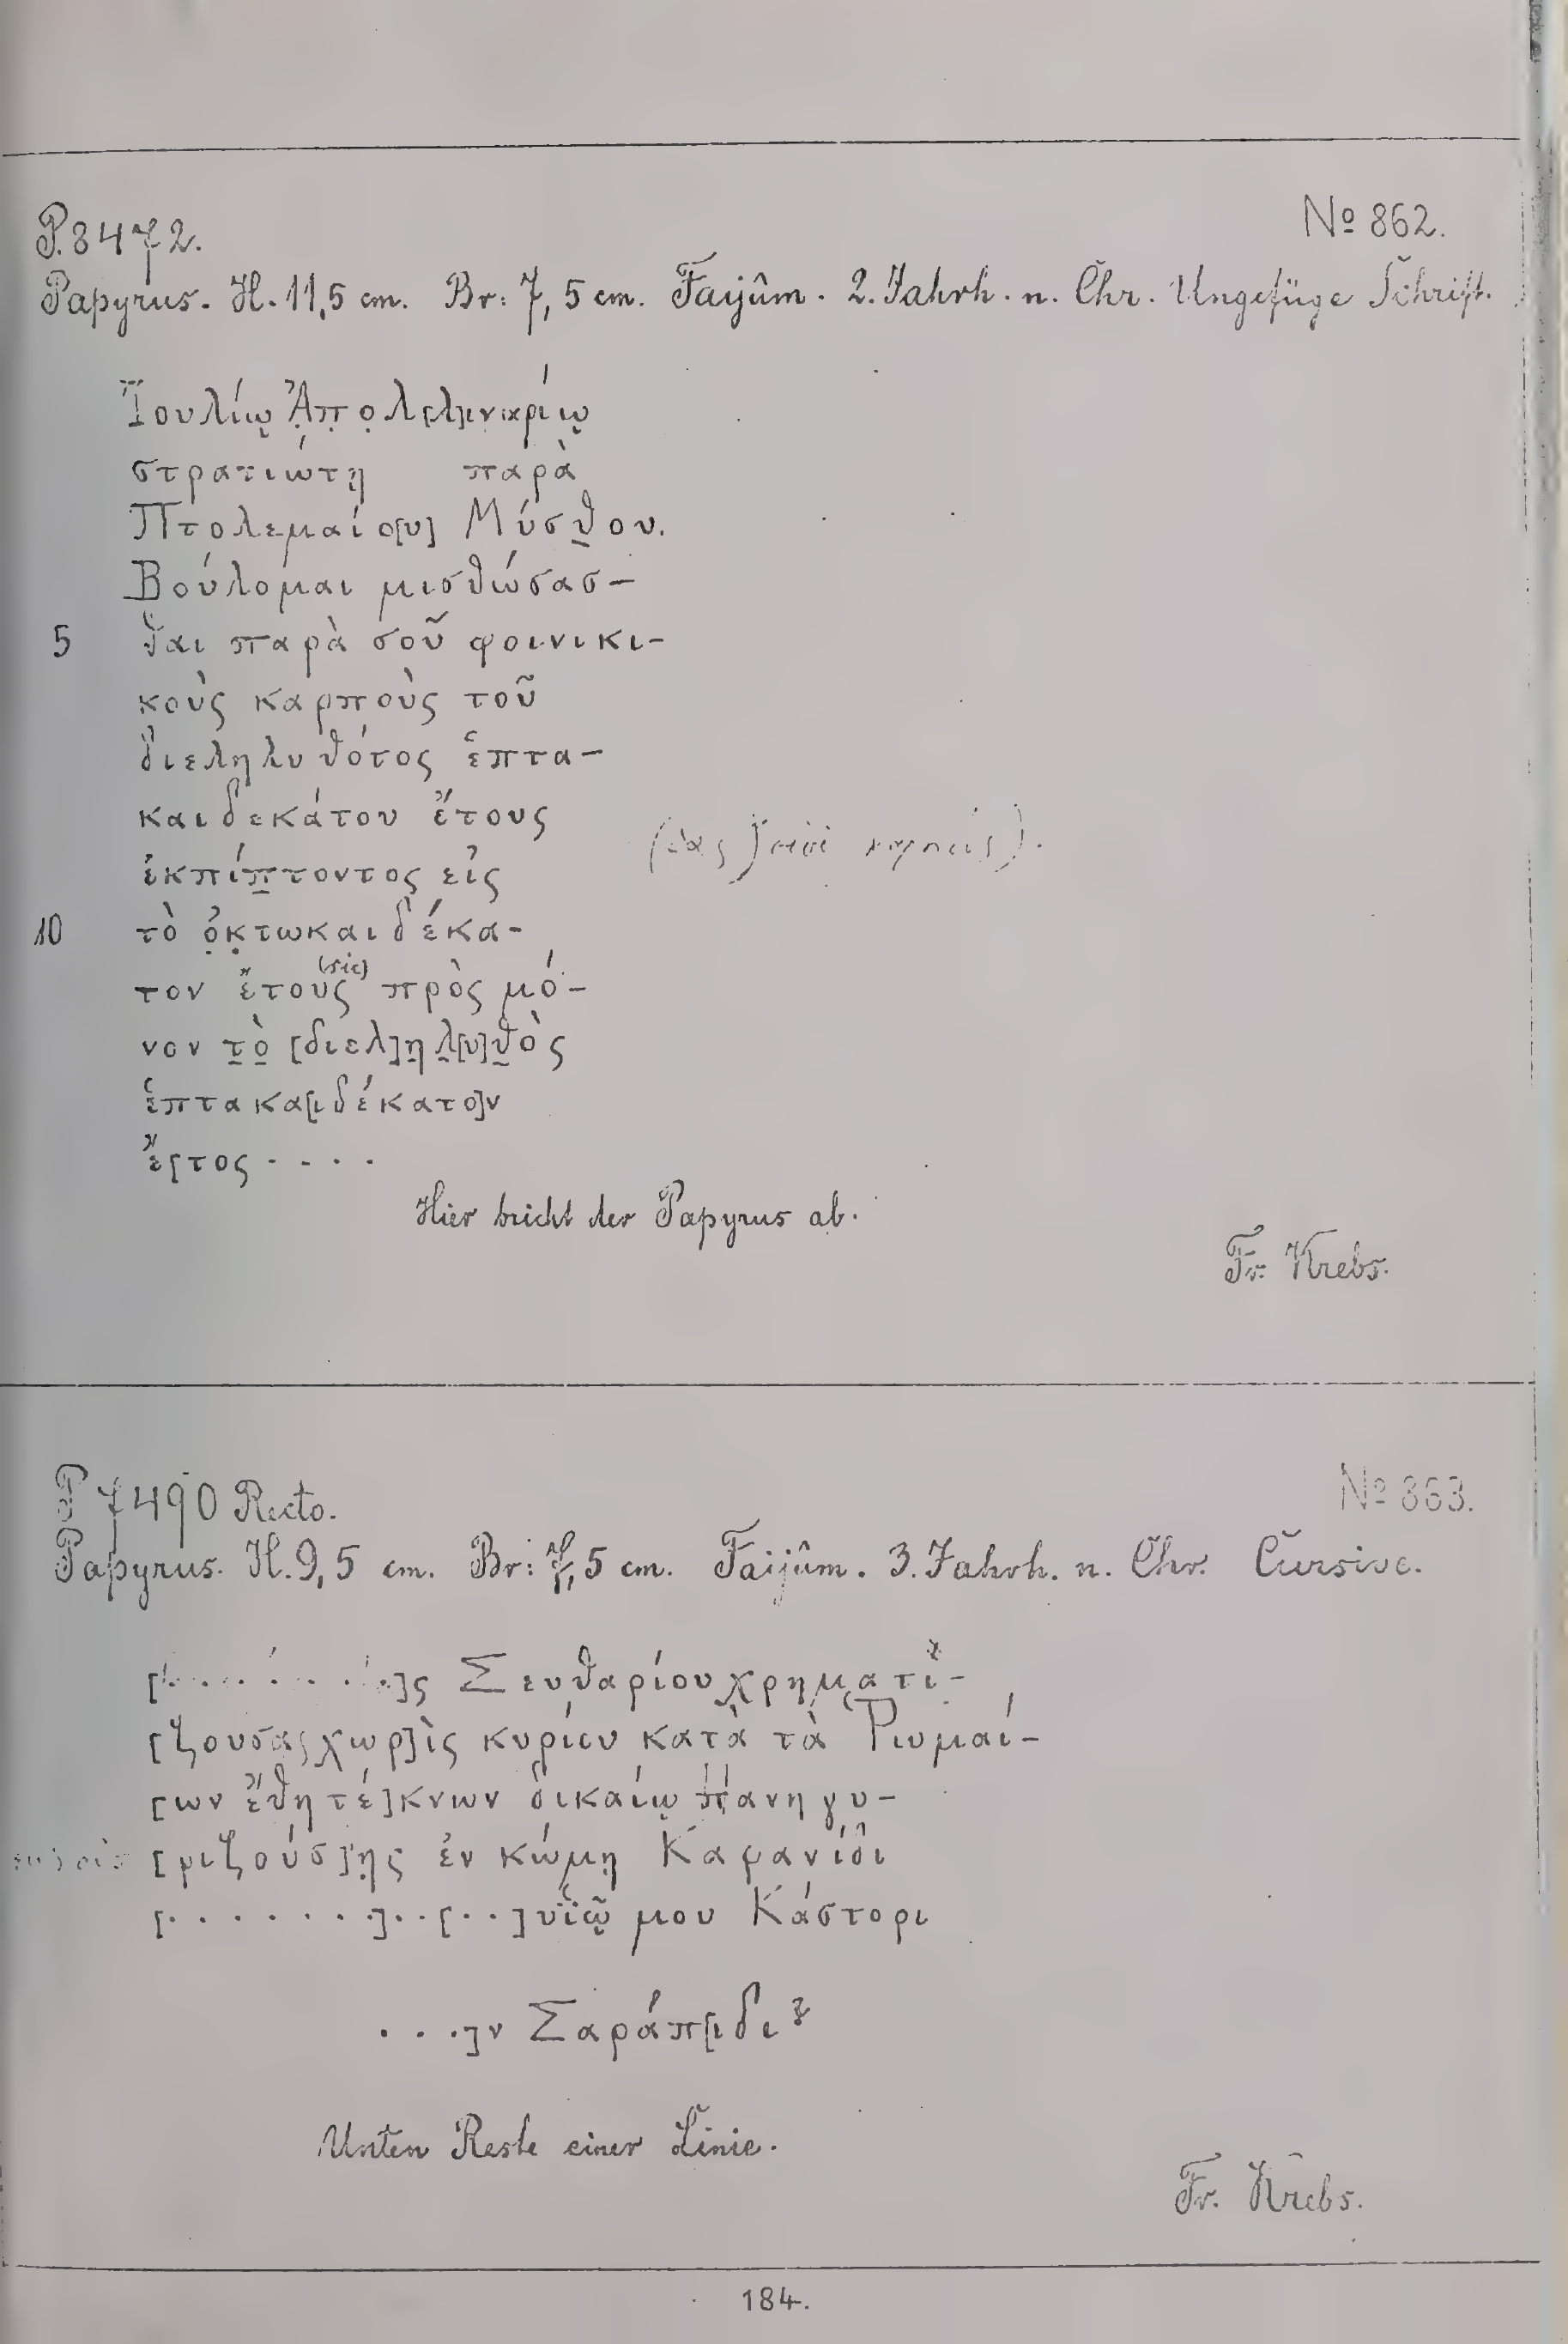 P. 8472.
No 862.
Papyrus. H. 11,5 cm. Br: 7,5 cm. Faijûm. 2. Jahrh. n. Chr. Ungefüge Schrift.
Ἰουλίῳ Ἀ̣π̣ο̣λ[λ]ιναρίῳ
στρατιώτῃ παρὰ
Πτολεμαίο[υ] Μύσθου.
Βούλομαι μισθώσασ-
5 θαι παρὰ σοῦ φοινικι-
κοὺς καρποὺς τοῦ
διεληλυθότος ἑπτα-
καιδεκάτου ἔτους
ἐκπίπτοντος εἰς
10 τὸ ὀ̣κ̣τωκαιδέκα-
τον ἔτους (sic) πρὸς μό-
νον τὸ [διελ]ηλ[υ]θὸς
ἑπτακα[ιδέκατο]ν
ἔ[τος ....
Hier bricht der Papyrus ab.
Fr. Krebs.
P 7490 Recto.
No 863.
Papyrus. H. 9,5 cm. Br: 7,5 cm. Faijûm. 3. Jahrh. n. Chr. Cursive.
]ς Σευθαρίου χρηματι-
[ζουσας χωρ]ὶς κυρίου κατὰ τὰ Ῥωμαί-
[ων ἔθη τέ]κνων δικαίῳ πανηγυ-
[ριζούσ]ης ἐν κώμῃ Καφανίδι
[.......]..[..]υἱῷ μου Κάστορι
...]ν Σαράπ[ιδι
Unten Reste einer Linie.
Fr. Krebs.
184.